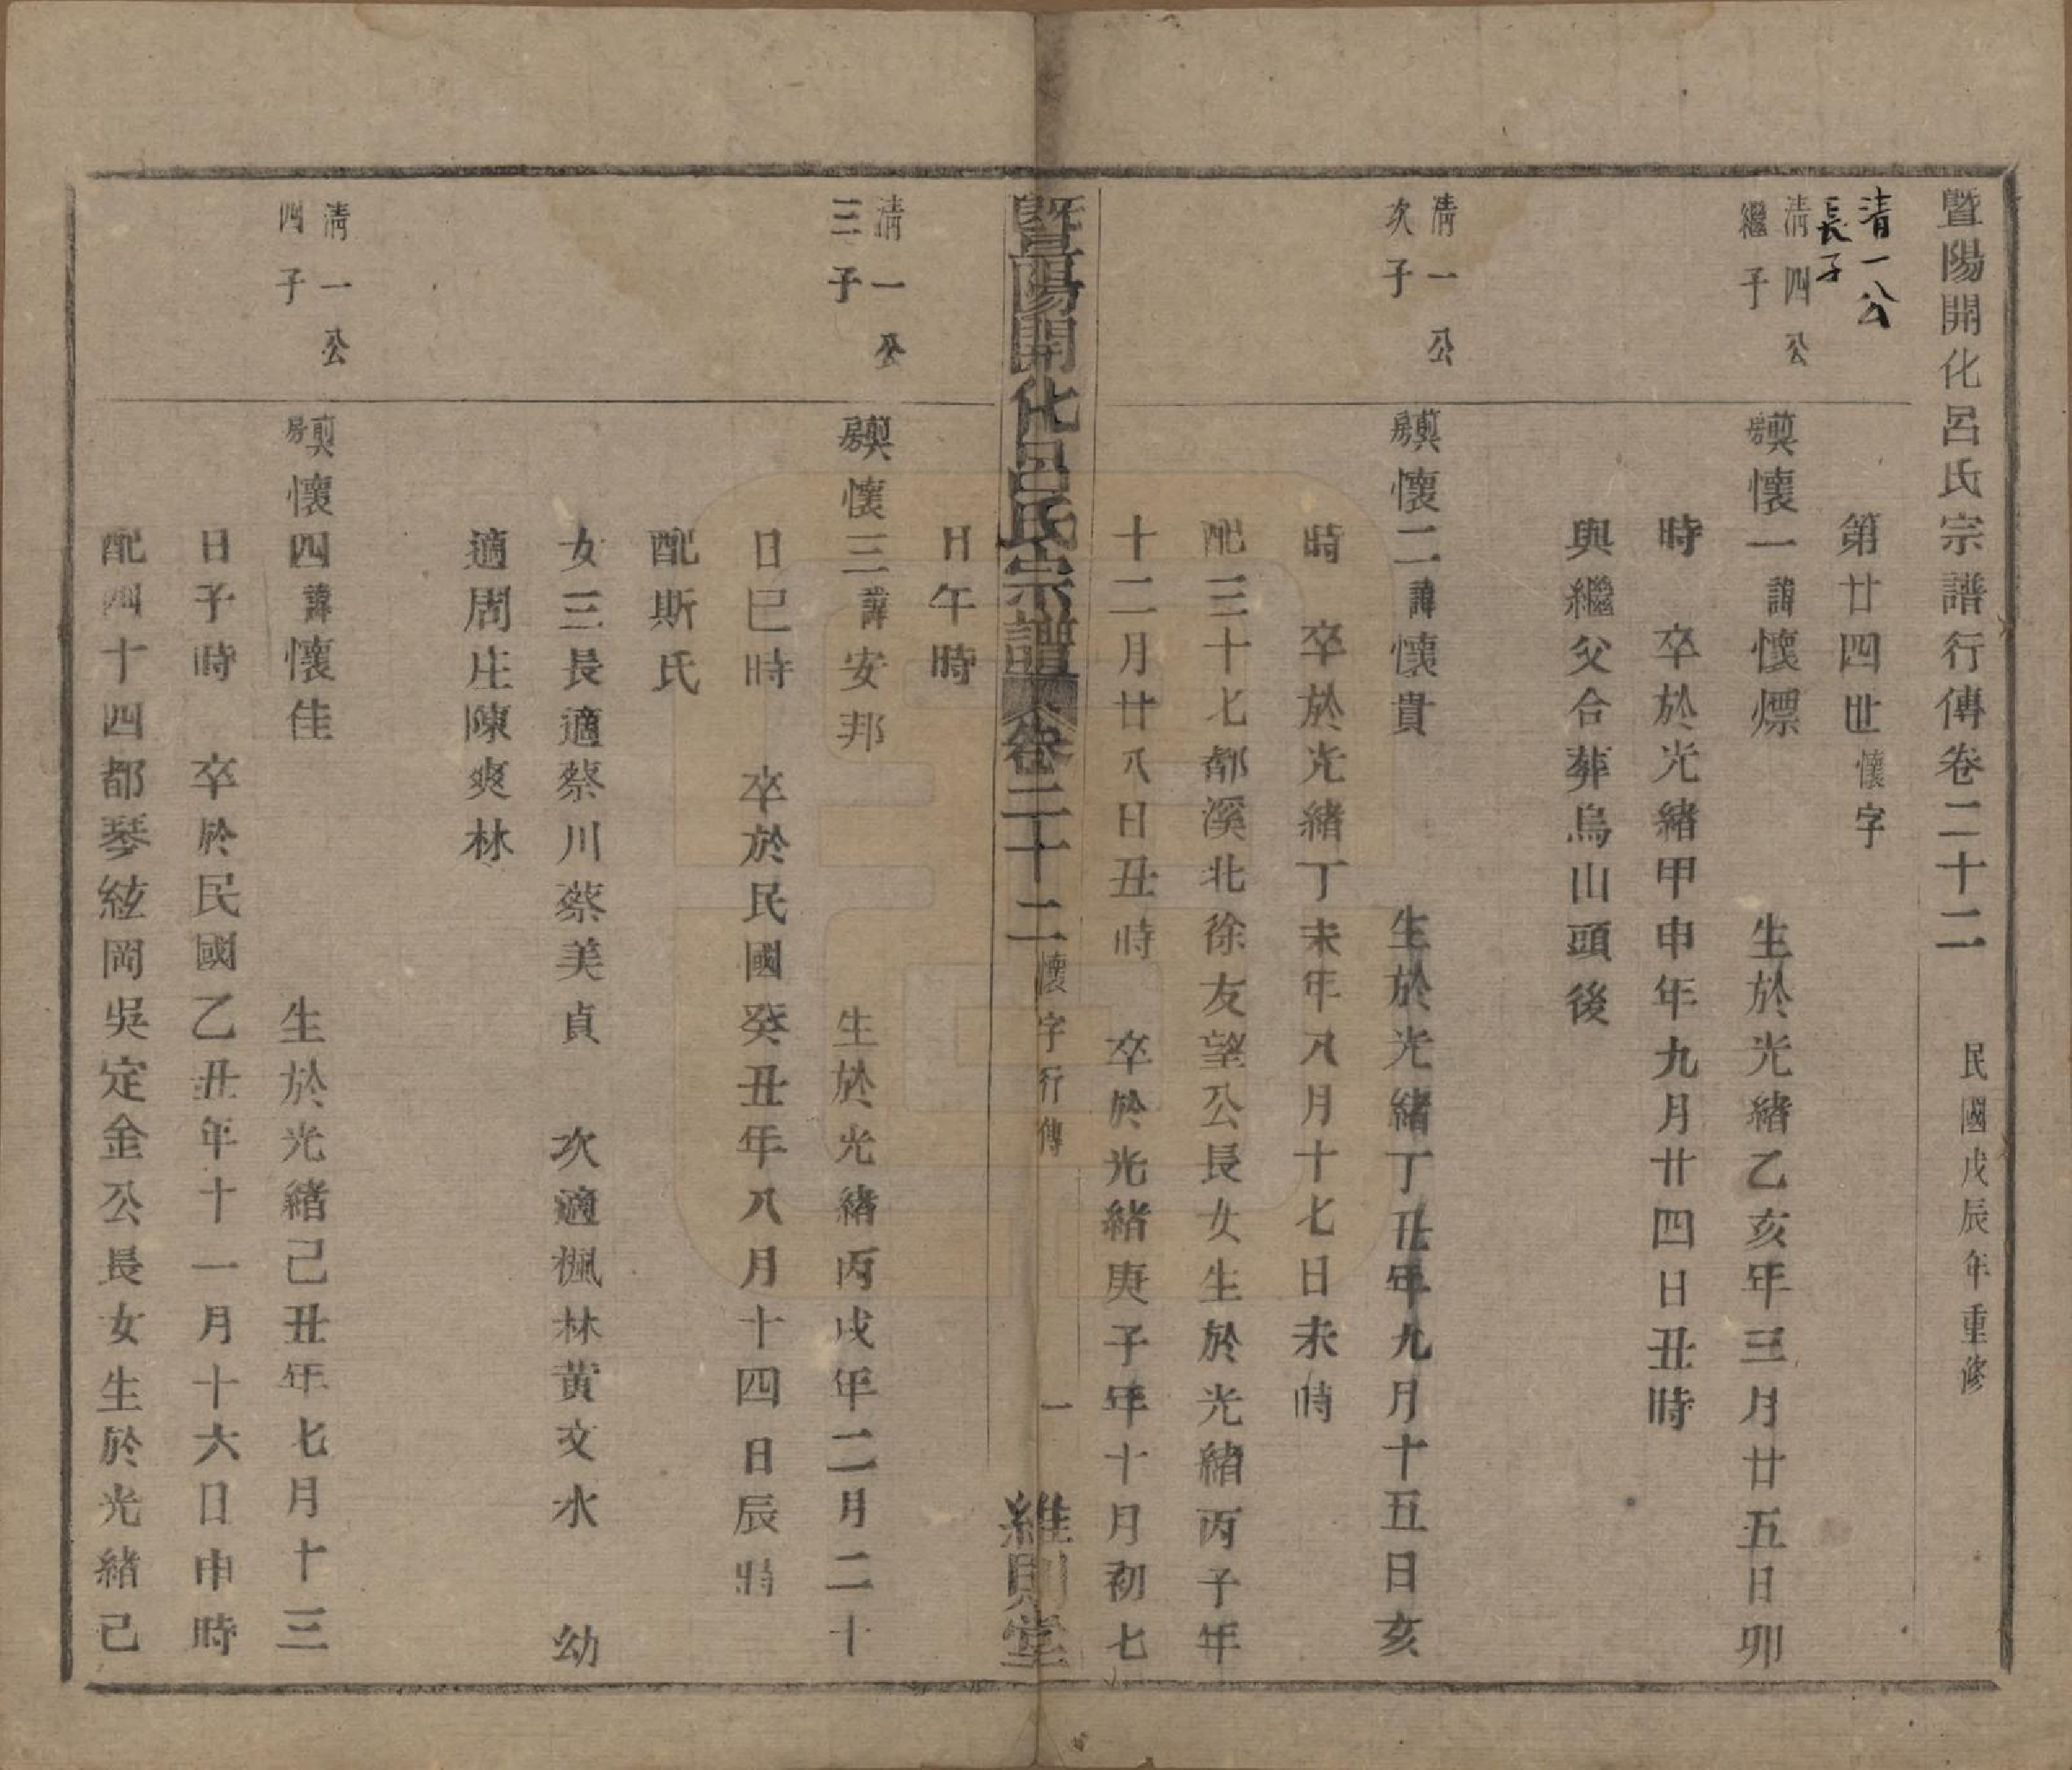 暨陽開化呂氏宗譜行傳卷二十二 民國戊辰年重修
第廿四世懷字
清一公長子
清四公繼子
巽房懷一諱懷㷼 生於光緒乙亥年三月廿五日卯
時 卒於光緒甲申年九月廿四日丑時
與繼父合葬烏山頭後
清一公次子
巽房懷二諱懷貴 生於光緒丁丑年九月十五日亥
時 卒於光緒丁未年八月十七日未時
配三十七都溪北徐友望公長女生於光緒丙子年
十二月廿八日丑時 卒於光緒庚子年十月初七
暨陽開化呂氏宗譜 卷二十二 懷字行傳 一 維則堂
日午時
清一公三子
巽房懷三諱安邦 生於光緒丙戌年二月二十
日巳時 卒於民國癸丑年八月十四日辰時
配斯氏
女三長適蔡川蔡美貞 次適楓林黃文水 幼
適周庄陳爽林
清一公四子
巽房懷四諱懷佳 生於光緒己丑年七月十三
日子時 卒於民國乙丑年十一月十六日申時
配四十四都琴絃岡吳定金公長女生於光緒己